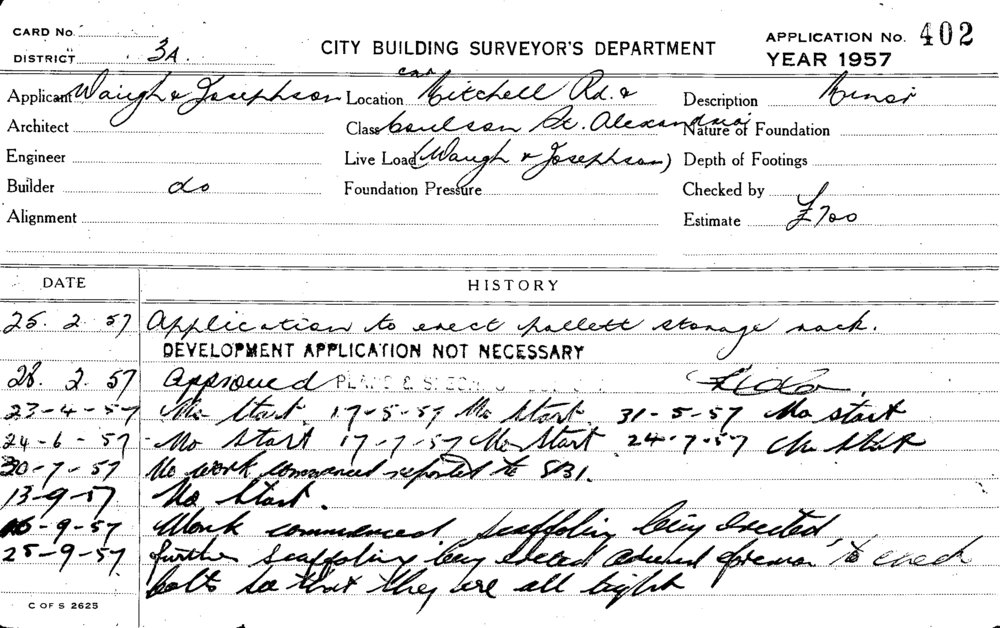 CARD No.
DISTRICT 3A.
CITY BUILDING SURVEYOR'S DEPARTMENT
APPLICATION No. 402
YEAR 1957
Applicant Waugh & Josephson Location cnr Mitchell Rd. & Description Minor
Architect Class Coulson St. Alexandria Nature of Foundation
Engineer Live Load (Waugh & Josephson) Depth of Footings
Builder do Foundation Pressure Checked by
Alignment Estimate £700
DATE HISTORY
25. 2. 57 Application to erect pallett storage rack.
DEVELOPMENT APPLICATION NOT NECESSARY
28. 2. 57 Approved PLANS &
23-4-57 No Start. 17-5-57 No Start. 31-5-57 No start
24-6-57 No Start 17-7-57 No Start. 24-7-57 No start
30-7-57 No work commenced reported to
13-9-57 No Start.
16-9-57 Work commenced, scaffolding being erected,
25-9-57 further scaffolding being erected foreman to check
bolts so that they are all tight
C OF S 2625